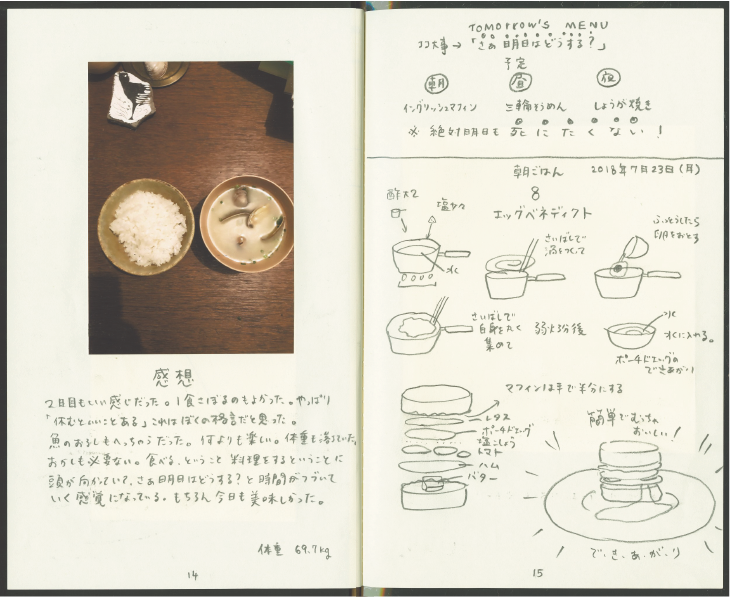 感想
2日目もいい感じだった。1食さぼるのもよかった。やっぱり
「休むといいことある」これはぼくの格言だと思った。
魚のおろしもへっちゃらだった。何よりも楽しい。体重も減っていた。
おかしも必要ない。食べる、ということ 料理をするということに
頭が向かっていて、さぁ明日はどうする?と時間がつづいて
いく感覚になっている。もちろん今日も美味しかった。
体重 69.7kg
14
TOMORROW'S MENU
ココ大事→「さぁ明日はどうする?」
予定
朝 昼 夜
イングリッシュマフィン 三輪そうめん しょうが焼き
※ 絶対明日も 死にたくない!
朝ごはん 2018年7月23日(月)
8
エッグベネディクト
酢大2
塩少々
水
さいばしで
渦をつくって
ふっとうしたら
卵をおとす
さいばしで
白身を丸く
集めて
弱火3分後
水
水に入れる。
ポーチドエッグの
できあがり
マフィンは手で半分にする
レタス
ポーチドエッグ
塩こしょう
トマト
ハム
バター
簡単でむっちゃ
おいしい!
で・き・あ・が・り
15